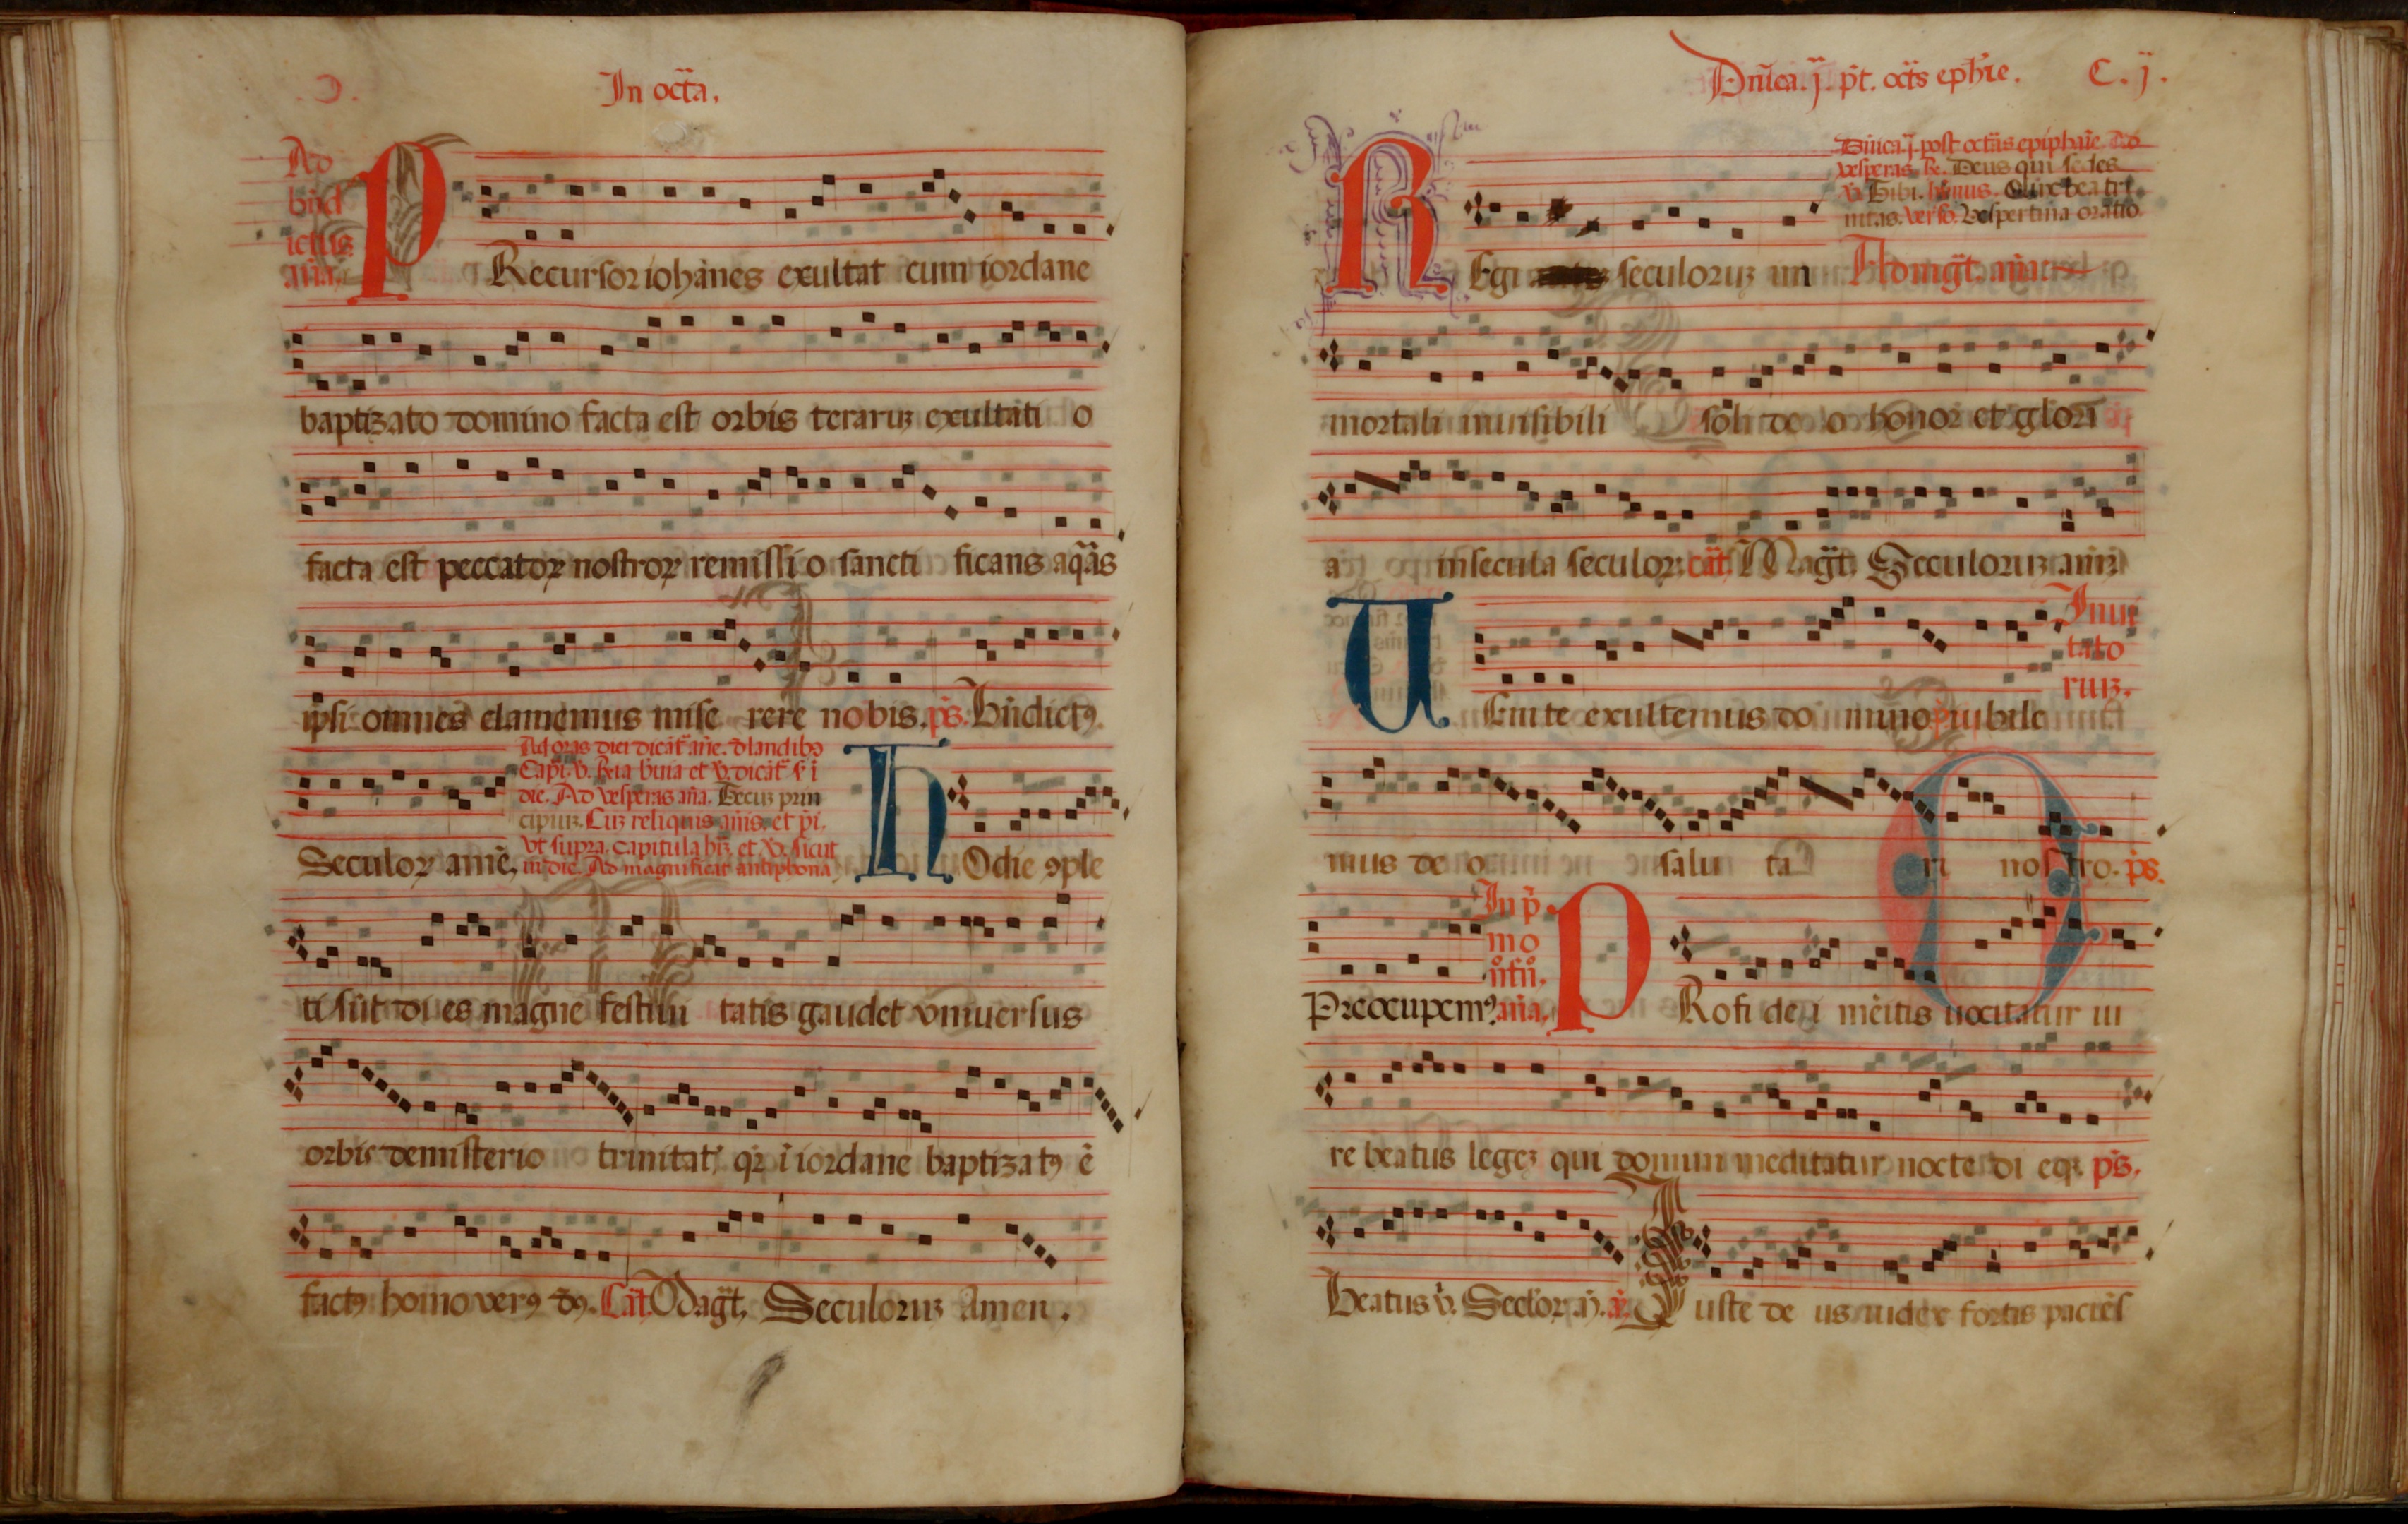 In octa.
Ad
bnd
ictus
ana.
PRecursor iohanes exultat cum iordane
baptizato domino facta est orbis teraruz exultati o
facta est peccator nostror remissi o sancti ficans aquas
ipsi omnes clamemus mise rere nobis. ps. Bndict9.
Ad oras diei dicat ane. d laudib9
Capi. v. Rta buia et v. dicat s i
die. Ad vesperas ana. Tecuz prin
cipiuz. Cuz reliquis anis. et pi.
vt supra. Capitula hz. et v. sicut
in die. Ad magnificat antiphona
Seculor ame.
HOdie 9ple
ti sut di es magne festiui tatis gaudet vniuersus
orbis de misterio trinitat qr i iordane baptizat9 e
fact9 homo ver9 d9. Cat. Magt. Seculoruz Amen.
Dnica. j. pt. octs ephie. C. j.
Dnica j. post octas epiphaie. Ad
vesperas. R. Deus qui sedes
v. Tibi. himnus. O lux beatri
nitas. verso. Vespertina oratio
REgi seculoruz im Ad magt. ana.
mortali inuisibili soli de o honor et glori
a in secula seculor. cat. Magt. Seculoruz am
Inui
tato
riuz.
UEnite exultemus do mino iubile
mus de o salu ta ri nostro. ps.
In p
mo
nfno.
Preocupem9. ana.
PRofi de i meitis uocitatur iu
re beatus legez qui domini meditatur nocte di eqz ps.
Beatus v. Seclor a. a. Iuste de us iudex fortis pacies